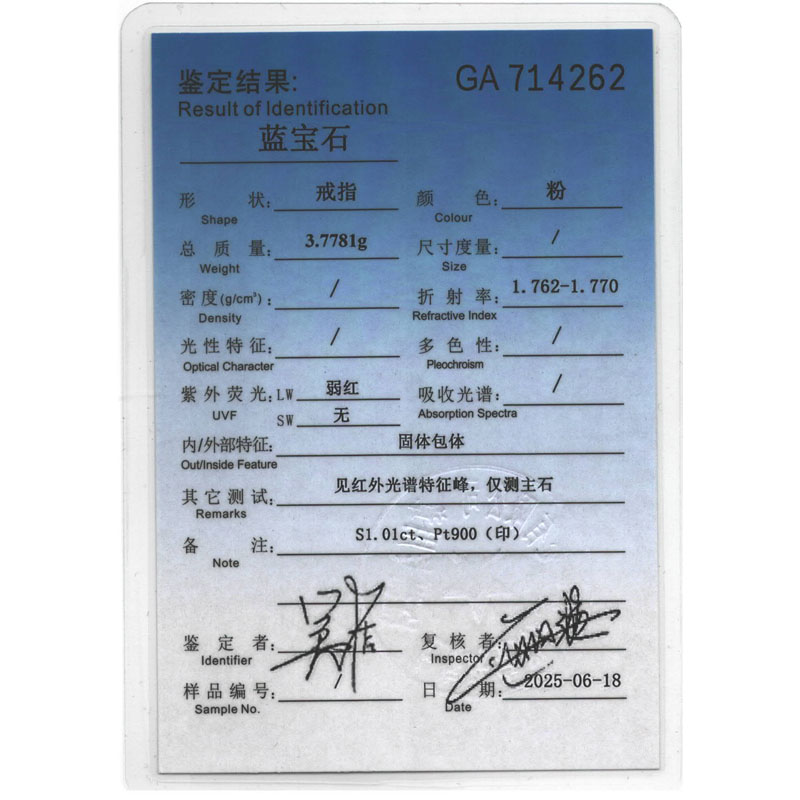 鉴定结果: GA 714262
Result of Identification
蓝宝石
形状: 戒指 颜色: 粉
Shape Colour
总质量: 3.7781g 尺寸度量: /
Weight Size
密度(g/cm³): / 折射率: 1.762-1.770
Density Refractive Index
光性特征: / 多色性: /
Optical Character Pleochroism
紫外荧光: LW 弱红 吸收光谱: /
UVF SW 无 Absorption Spectra
内/外部特征: 固体包体
Out/Inside Feature
其它测试: 见红外光谱特征峰，仅测主石
Remarks
备注: S1.01ct、Pt900（印）
Note
鉴定者: 复核者:
Identifier Inspector
样品编号: 日期: 2025-06-18
Sample No. Date